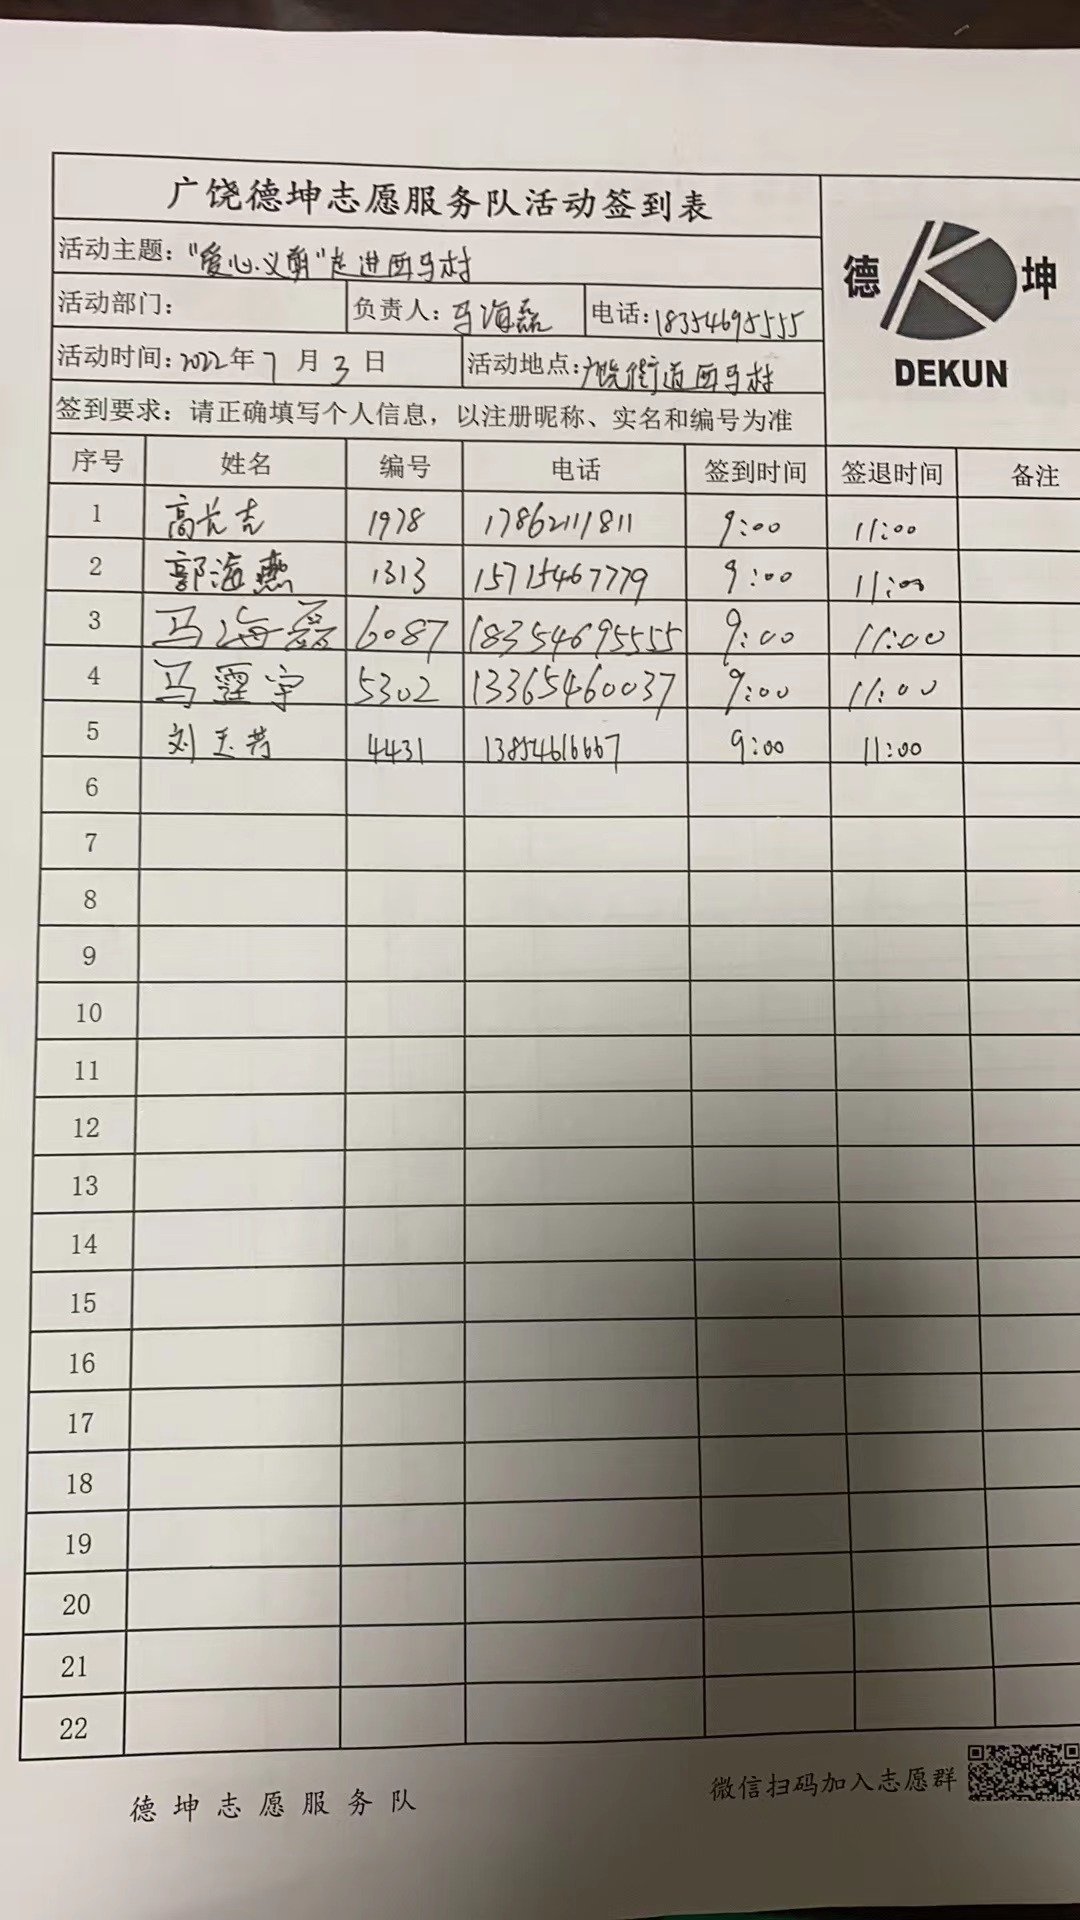 广饶德坤志愿服务队活动签到表
德 坤
DEKUN
活动主题：“爱心义剪”走进西马村
活动部门： 负责人：马海磊 电话：18354695555
活动时间：2022年7月3日 活动地点：广饶街道西马村
签到要求：请正确填写个人信息，以注册昵称、实名和编号为准
序号 姓名 编号 电话 签到时间 签退时间 备注
1 高长吉 1978 17862111811 9:00 11:00
2 郭海燕 1313 15715467779 9:00 11:00
3 马海磊 6087 18354695555 9:00 11:00
4 马霆宇 5302 13365460037 9:00 11:00
5 刘玉芳 4431 13854616667 9:00 11:00
6
7
8
9
10
11
12
13
14
15
16
17
18
19
20
21
22
德坤志愿服务队
微信扫码加入志愿群